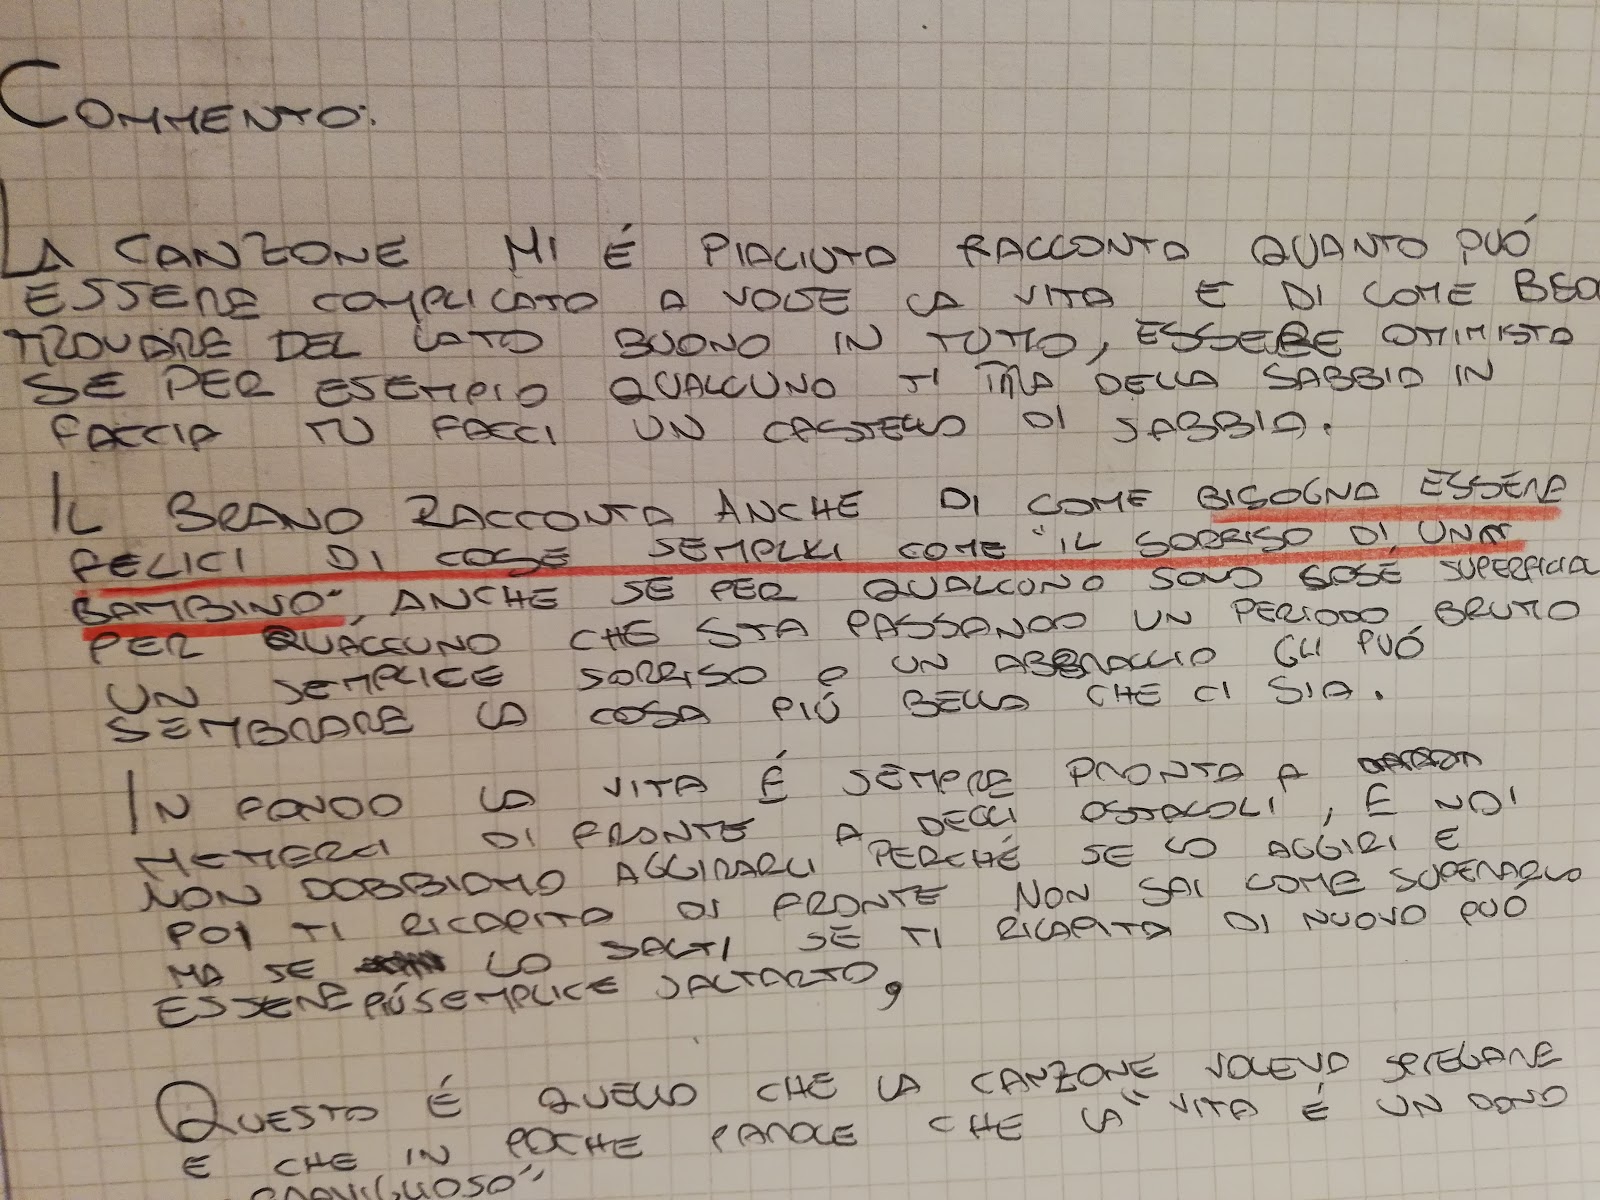 COMMENTO:
LA CANZONE MI É PIACIUTA RACCONTA QUANTO PUÓ
ESSERE COMPLICATO A VOLTE LA VITA E DI COME
TROVARE DEL LATO BUONO IN TUTTO, ESSERE OTTIMISTA
SE PER ESEMPIO QUALCUNO TI TIRA DELLA SABBIA IN
FACCIA TU FACCI UN CASTELLO DI SABBIA.
IL BRANO RACCONTA ANCHE DI COME BISOGNA ESSERE
FELICI DI COSE SEMPLICI COME "IL SORRISO DI UN
BAMBINO", ANCHE SE PER QUALCUNO SONO COSE SUPERFICIA
PER QUALCUNO CHE STA PASSANDO UN PERIODO BRUTTO
UN SEMPLICE SORRISO O UN ABBRACCIO GLI PUÓ
SEMBRARE LA COSA PIÚ BELLA CHE CI SIA.
IN FONDO LA VITA É SEMPRE PRONTA A
METTERCI DI FRONTE A DEGLI OSTACOLI, E NOI
NON DOBBIAMO AGGIRARLI PERCHÉ SE LO AGGIRI E
POI TI RICAPITA DI FRONTE NON SAI COME SUPERARLO
MA SE LO SALTI SE TI RICAPITA DI NUOVO PUÓ
ESSERE PIÚ SEMPLICE SALTARLO,
QUESTO É QUELLO CHE LA CANZONE VOLEVA SPIEGARE
E CHE IN POCHE PAROLE CHE LA "VITA É UN DONO